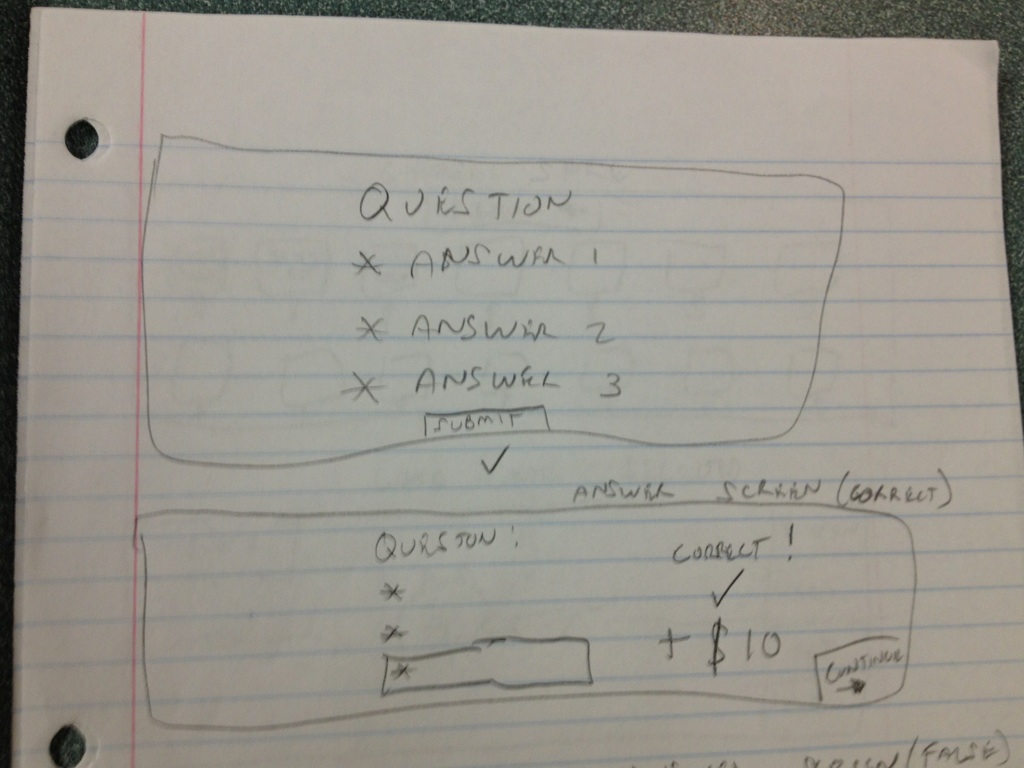 QUESTION
* ANSWER 1
* ANSWER 2
* ANSWER 3
SUBMIT
✓
ANSWER SCREEN (CORRECT)
QUESTON: CORRECT!
* ✓
* + $10
* CONTINUE →
SCREEN (FALSE)